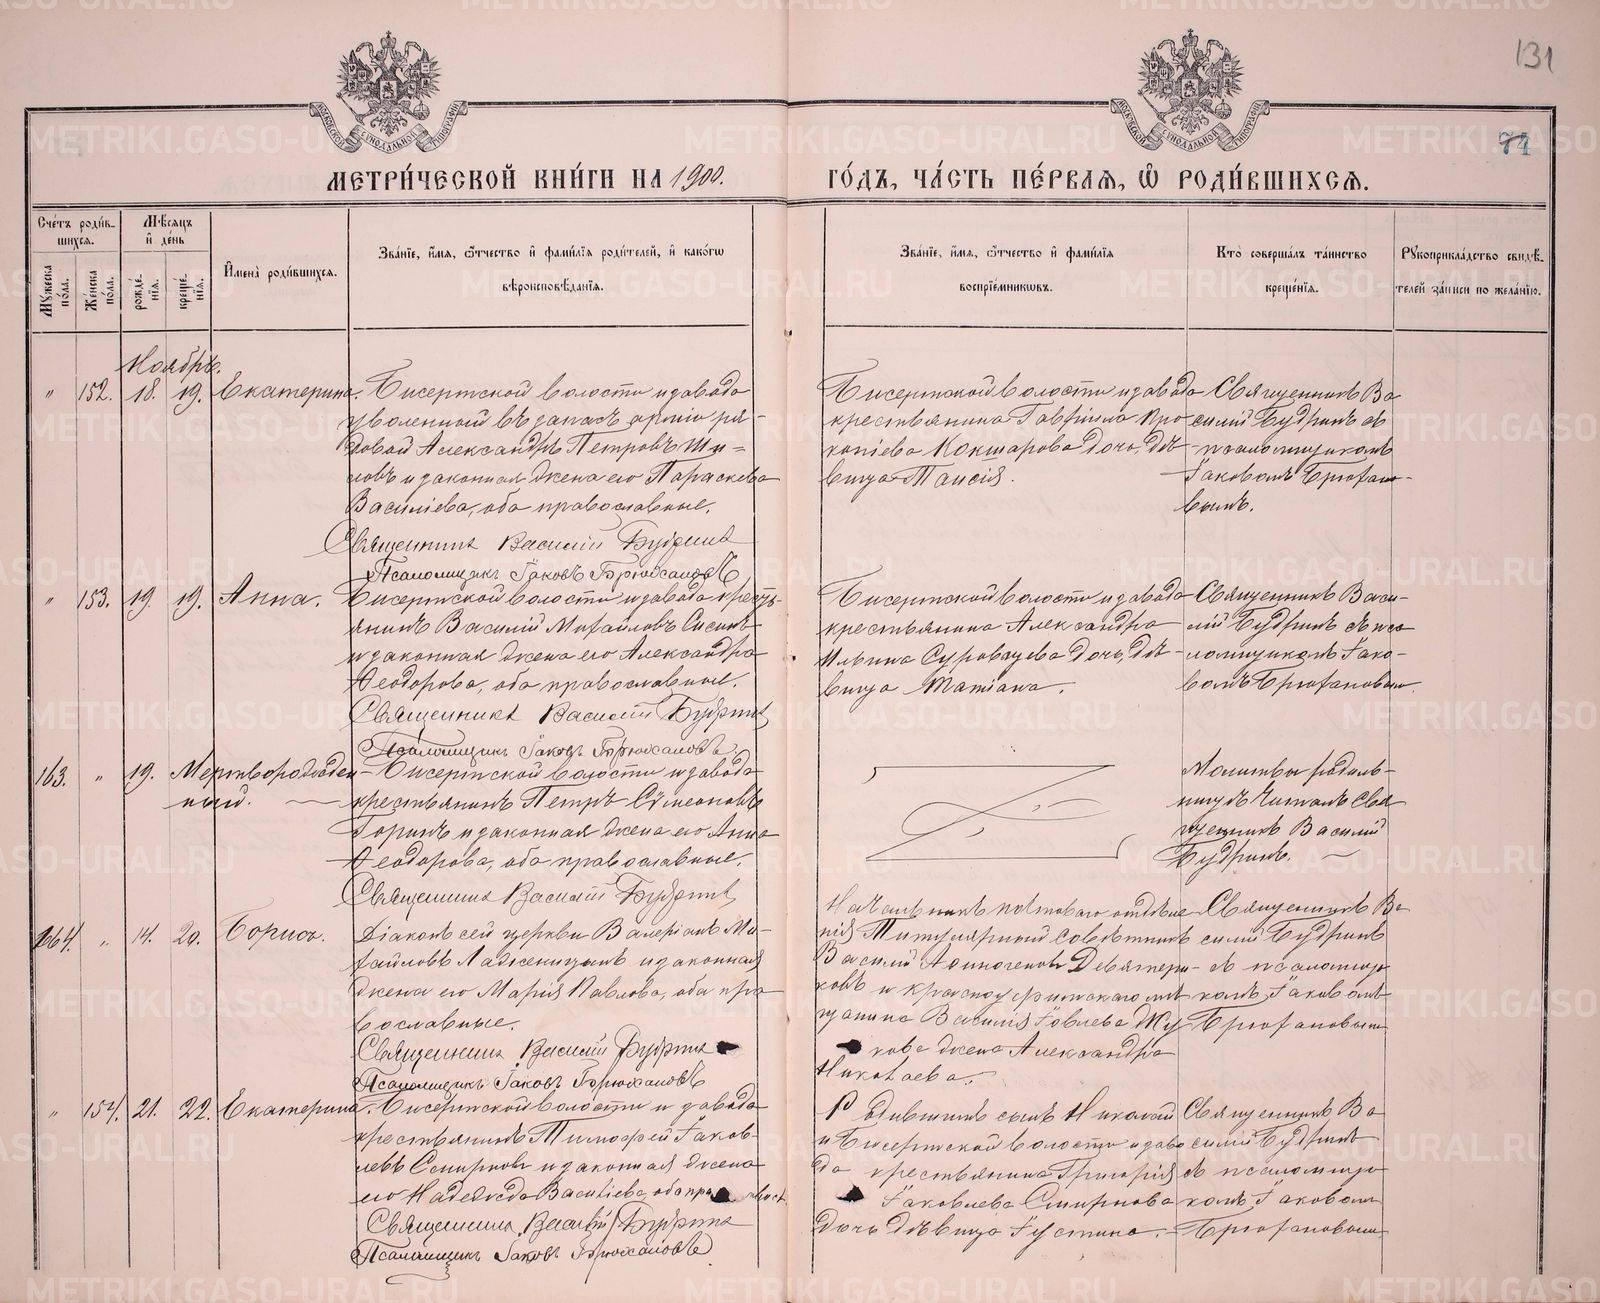 131
74
МЕТРИ́ЧЕСКОЙ КНИ́ГИ НА 1900.
ГО́ДЪ, ЧА́СТЬ ПЕ́РВАЯ, Ѽ РОДИ́ВШИХСЯ.
Сче́тъ роди́в-
шихся.
Мѣ́сяцъ
и де́нь
Му́жеска
по́ла.
Же́нска
по́ла.
рожде́-
нія.
креще́-
нія.
Имена̀ роди́вшихся.
Зва́ніе, и́мя, ѻ҆́тчество и҆ фами́лія роди́телей, и҆ како́гѡ
вѣроисповѣ́данія.
Зва́ніе, и́мя, ѻ҆́тчество и҆ фами́лія
воспріе́мниковъ.
Кто̀ соверша́лъ та́инство
креще́нія.
Рукоприкла́дство свидѣ́-
телей за́писи по жела́нію.
Ноябрь.
" 152. 18. 19. Екатерина. Бисертской волости и завода
уволенный въ запасъ арміи ря-
довой Александръ Петровъ Ши-
ловъ и законная жена его Параскева
Васильева, оба православные.
Священникъ Василій Будринъ
Псаломщикъ Іаковъ
Бисертской волости и завода
крестьянина Гавріила Про-
копіева Кокшарова дочь, дѣ-
вица Таисія.
Священникъ Ва-
силій Будринъ съ
псаломщикомъ
Іаковомъ
" 153. 19. 19. Анна. Бисертской волости и завода кресть-
янинъ Василій Михайловъ Сысинъ
и законная жена его Александра
Ѳеодорова, оба православные.
Священникъ Василій Будринъ
Псаломщикъ Іаковъ
Бисертской волости и завода
крестьянина Александра
Ильина Суровцева дочь, дѣ-
вица Татіана.
Священникъ Васи-
лій Будринъ съ пса-
ломщикомъ Іако-
вомъ
163. " 19. Мертворожден-
ный. Бисертской волости и завода
крестьянинъ Петръ Сѵмеоновъ
Горинъ и законная жена его Анна
Ѳеодорова, оба православные.
Священникъ Василій Будринъ
Молитвы родиль-
ницѣ читалъ Свя-
щенникъ Василій
Будринъ.
164. " 14. 20. Борисъ. Діаконъ сей церкви Валеріанъ Ми-
хайловъ и законная
жена его Марія Павлова, оба пра-
вославные.
Священникъ Василій Будринъ
Псаломщикъ Іаковъ
Начальникъ почтоваго отдѣле-
нія Титулярный Совѣтникъ
Василій Аѳиногеновъ Девятери-
ковъ и красноуфимскаго мѣ-
щанина Василія Іовлева Жу-
кова жена Александра
Николаева.
Священникъ Ва-
силій Будринъ
съ псаломщи-
комъ Іаковомъ
" 154. 21. 22. Екатерина. Бисертской волости и завода
крестьянинъ Тимоѳей Іаков-
левъ Смирновъ и законная жена
его Надежда Васильева, оба
Священникъ Василій Будринъ
Псаломщикъ Іаковъ
сынъ Николай
и Бисертской волости и заво-
да крестьянина Григорія
Іаковлева Смирнова
дочь дѣвица Іустина.
Священникъ Ва-
силій Будринъ
съ псаломщи-
комъ Іаковомъ
METRIKI.GASO-URAL.RU